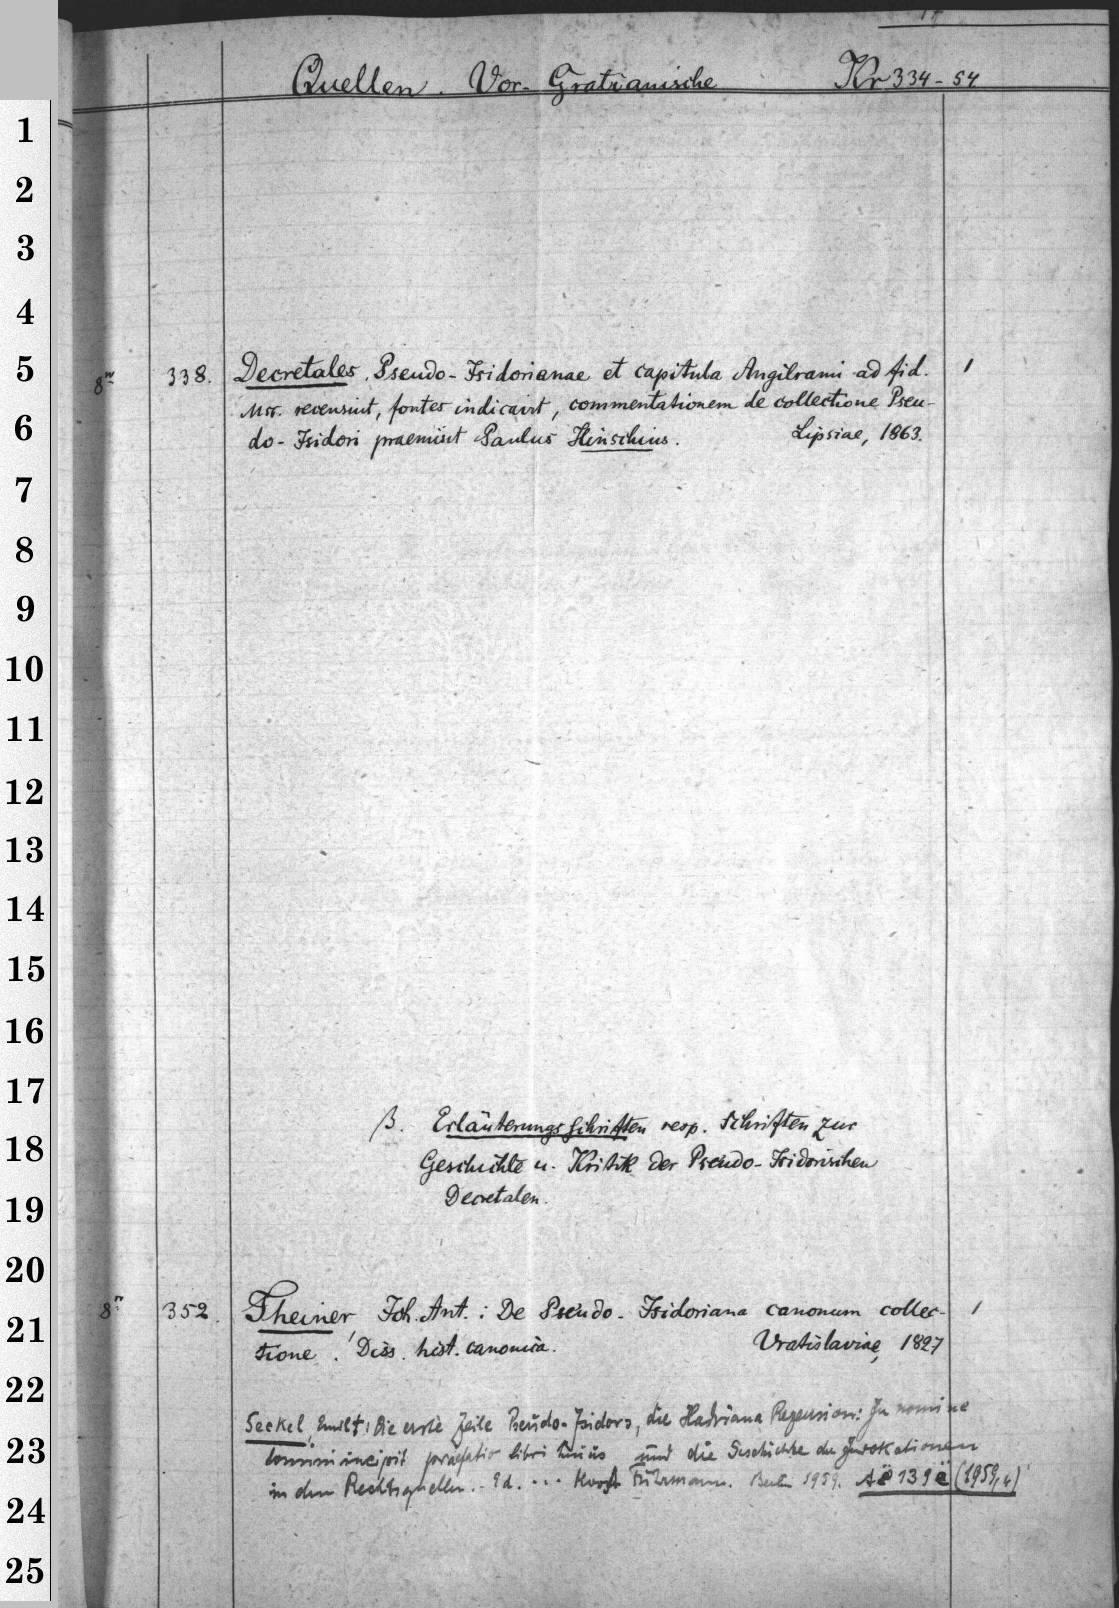 Quellen. Vor-Gratianische Kr 334-54
8° 338. Decretales Pseudo-Isidorianae et capitula Angilrami ad fid. 1
Mss. recensuit, fontes indicavit, commentationem de collectione Pseu-
do-Isidori praemisit Paulus Hinschius. Lipsiae, 1863.
β. Erläuterungsschriften resp. Schriften zur
Geschichte u. Kritik der Pseudo-Isidorischen
Decretalen.
8° 352. Theiner, Joh. Ant.: De Pseudo-Isidoriana canonum collec- 1
tione. Diss. hist. canonica. Vratislaviae, 1827
Seckel, Emil †: Die erste Zeile Pseudo-Isidors, die Hadriana Rezension: In nomine
domini incipit praefatio libri huius und die Geschichte der Invokationen
in den Rechtsquellen. - Ed. ... Horst Fuhrmann. Berlin 1959. (1959,4)
1
2
3
4
5
6
7
8
9
10
11
12
13
14
15
16
17
18
19
20
21
22
23
24
25